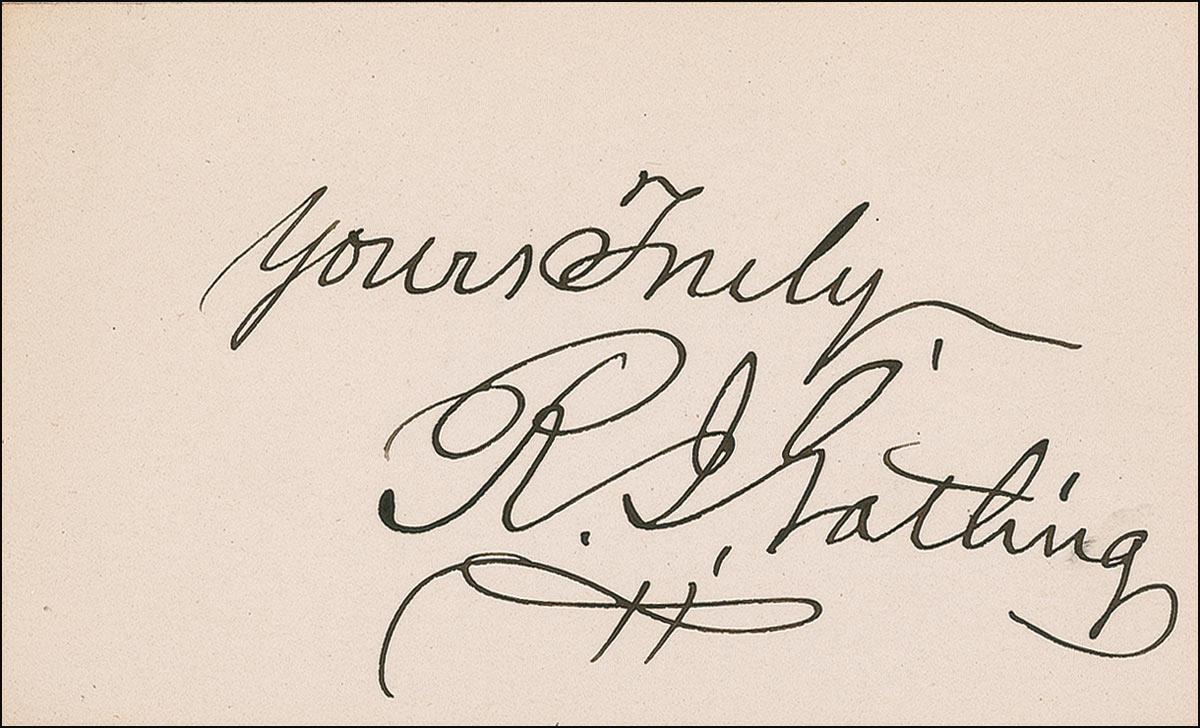 Yours Truly
R. J. Gatling